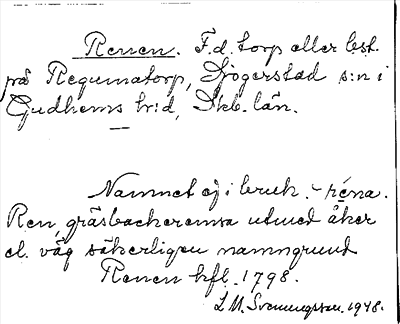 Renen. F.d. torp eller lest.
på Regumatorp, Sjogerstad s:n i
Gudhems hr:d, Skb. län.
Namnet ej i bruk. - réna.
Ren, gräsbackeremsa utmed åker
el. väg säkerligen namngrund
Renen hfl. 1798.
L M. Svenungsson. 1948.